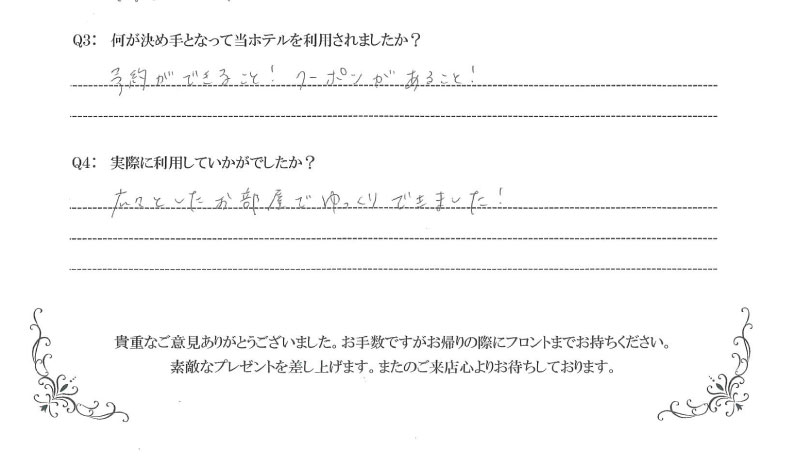 Q3: 何が決め手となって当ホテルを利用されましたか？
予約ができること！ クーポンがあること！
Q4: 実際に利用していかがでしたか？
広々としたお部屋でゆっくりできました！
貴重なご意見ありがとうございました。お手数ですがお帰りの際にフロントまでお持ちください。
素敵なプレゼントを差し上げます。またのご来店心よりお待ちしております。